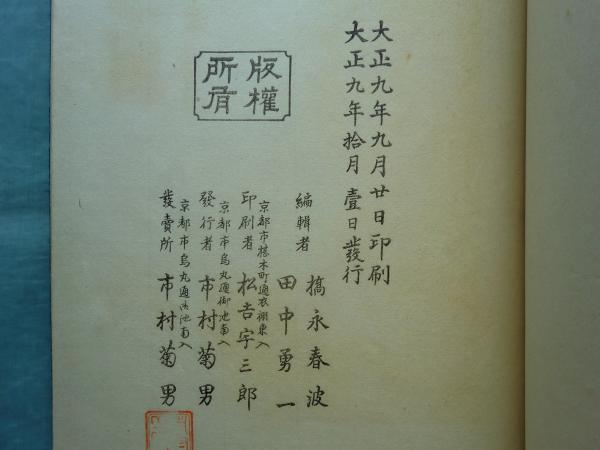 大正九年九月廿日印刷
大正九年拾月壹日發行
版權
所有
編輯者 橋永春波
田中勇一
京都市椹木町通衣棚東入
印刷者 松吉宇三郎
京都市烏丸通御池南入
發行者 市村菊男
京都市烏丸通御池南入
發賣所 市村菊男